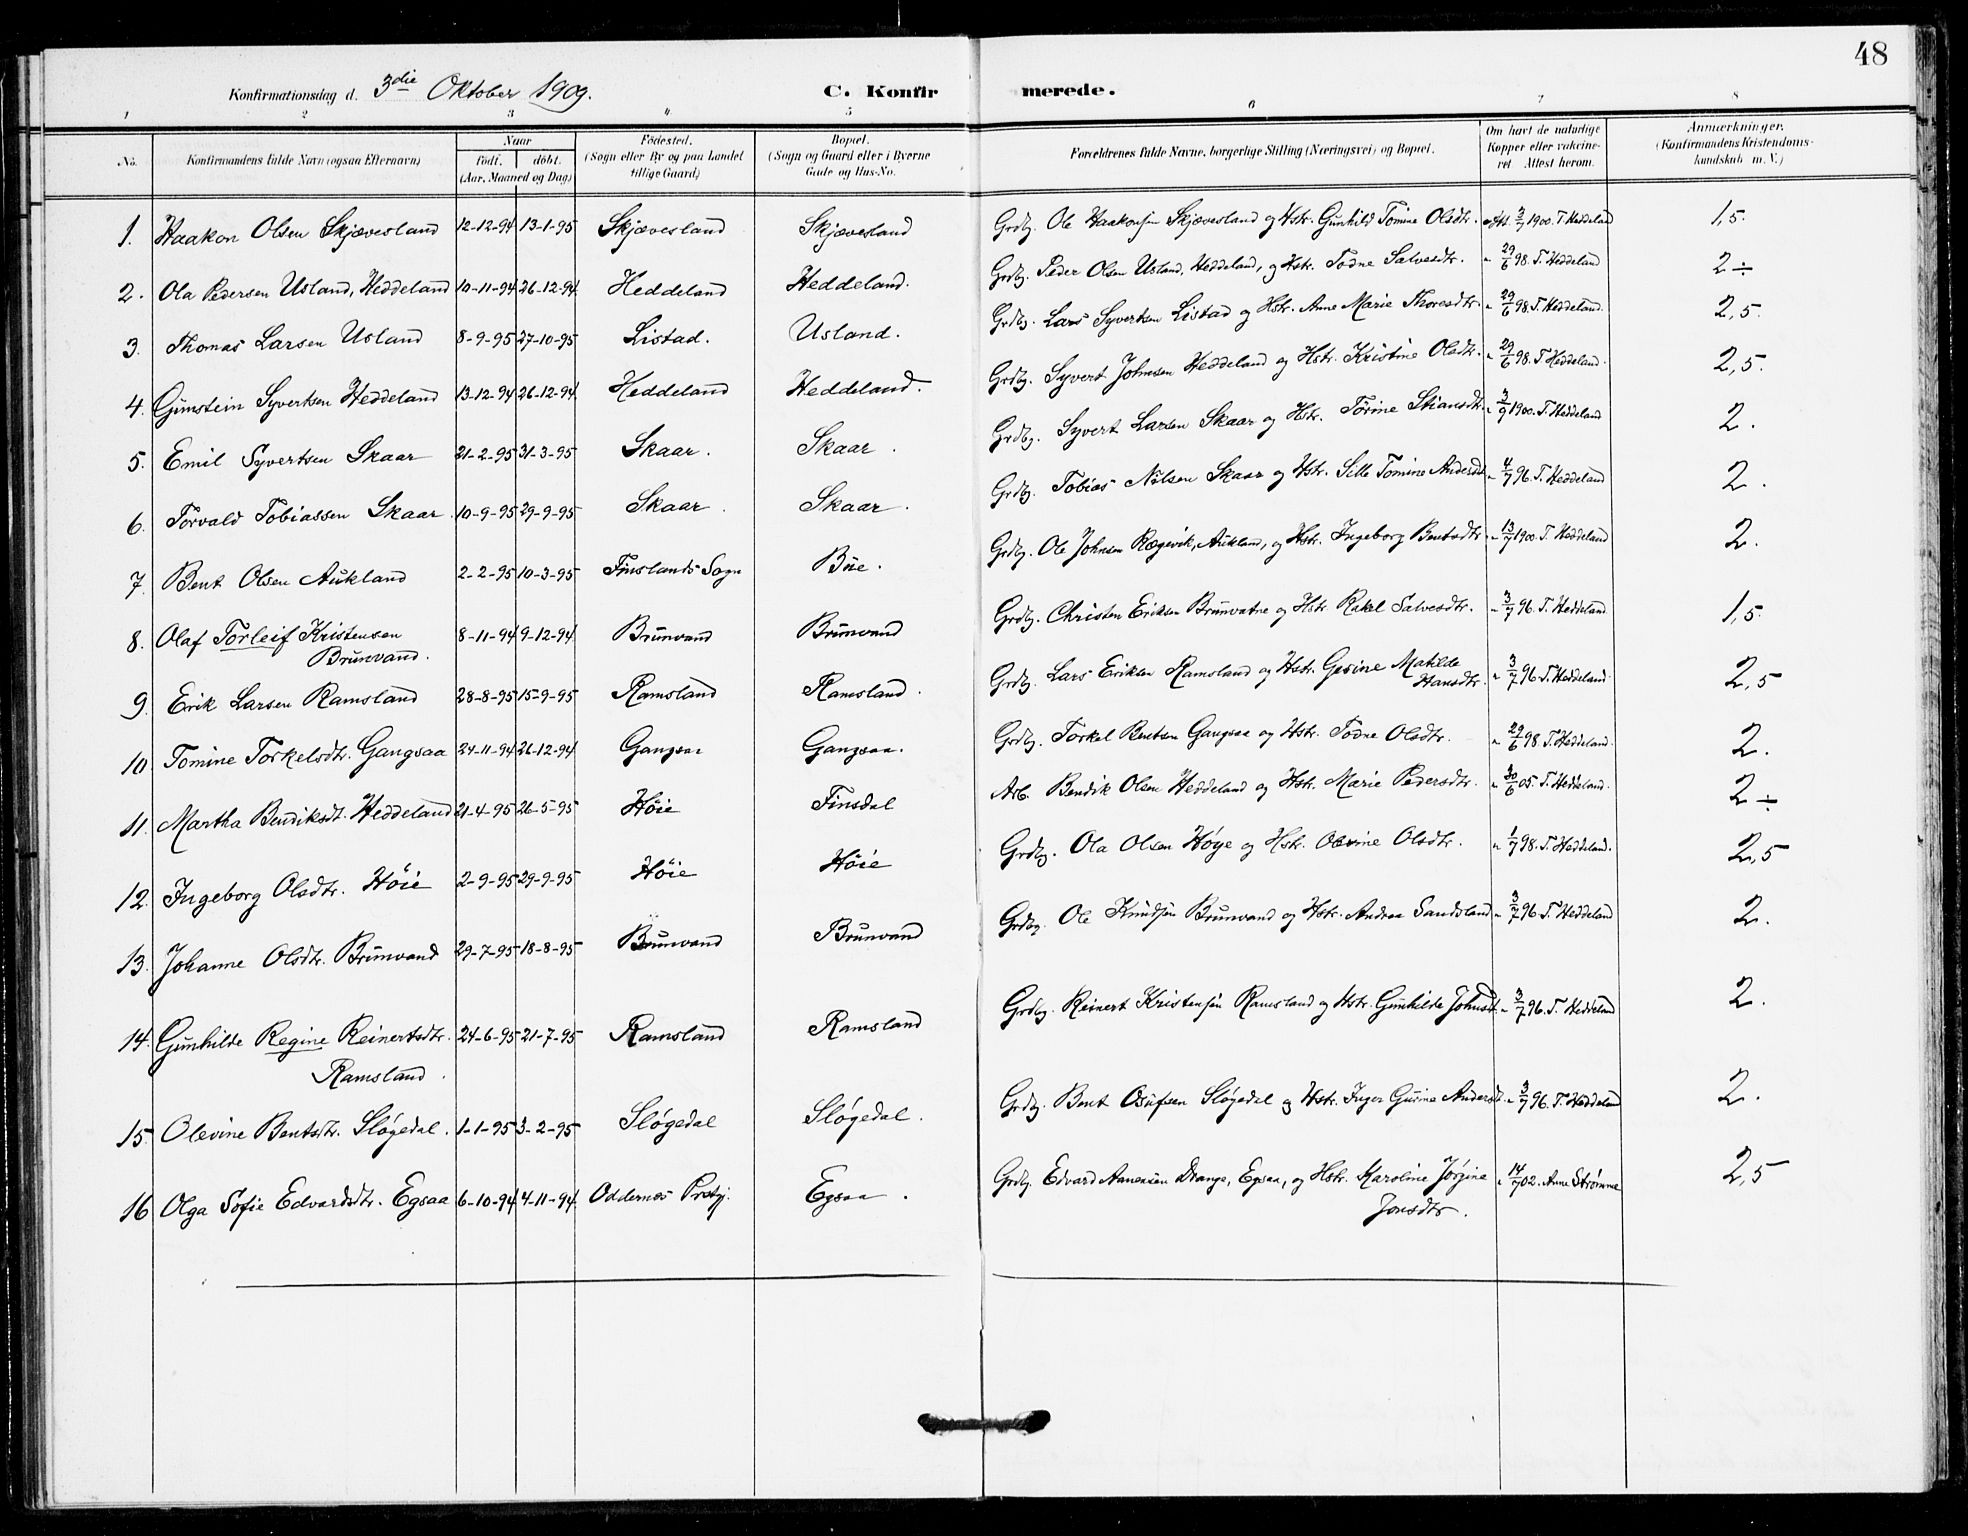 48
Konfirmationsdag d. 3die Oktober 1909. C. Konfirmerede.
1 2 3 4 5 6 7 8
No. Konfirmandens fulde Navn (ogsaa Efternavn) Naar født, døbt. (Aar, Maaned og Dag) Fødested. (Sogn eller By og paa Landet tillige Gaard) Bopæl. (Sogn og Gaard eller i Byerne Gade og Hus-No. Forældrenes fulde Navne, borgerlige Stilling (Næringsvei) og Bopæl. Om havt de naturlige Kopper eller vaksinevet Attest herom. Anmærkninger. (Konfirmandens Kristendomskundskab m. V.)
1. Haakon Olsen Skjævesland 12-12-94 13-1-95 Skjævesland Skjævesland Grdbg. Ole Haakonsen Skjævesland og Hstr. Gunhild Tomine Olsdtr. Att. 3/7 1900. T. Heddeland 1,5.
2. Ola Pedersen Usland, Heddeland 10-11-94 26-12-94 Heddeland Heddeland. Grdbg. Peder Olsen Usland, Heddeland, og Hstr. Todne Salvesdtr. " 29/6 98. T. Heddeland 2 ÷
3. Thomas Larsen Usland 8-9-95 27-10-95 Listad. Usland. Grdbg. Lars Syvertsen Listad og Hstr. Anne Marie Thoresdtr. " 29/6 98. T. Heddeland. 2,5.
4. Gunstein Syvertsen Heddeland 13-12-94 26-12-94. Heddeland Heddeland. Grdbg. Syvert Johnsen Heddeland og Hstr. Kristine Olsdtr. " 29/6 98. T. Heddeland. 2,5.
5. Emil Syvertsen Skaar 21-2-95 31-3-95 Skaar. Skaar. Grdbg. Syvert Larsen Skaar og Hstr. Torine Stiansdtr. " 3/9 1900. T. Heddeland 2.
6. Torvald Tobiassen Skaar. 10-9-95 29-9-95 Skaar. Skaar. Grdbg. Tobias Nilsen Skaar og Hstr. Sille Tomine Andersdt. " 4/7 96. T. Heddeland 2.
7. Bent Olsen Aukland 2-2-95 10-3-95 Finslands Sogn Bøe. Grdbg. Ole Johnsen Røgevik, Aukland, og Hstr. Ingeborg Bentsdtr. " 13/7 1900. T. Heddeland 2.
8. Olaf Torleif Kristensen 8-11-94 9-12-94 Brunvand Brunvand Grdbg. Christen Eriksen Brunvatne og Hstr. Rakel Salvesdtr. " 3/7 96. T. Heddeland 1,5.
Brunvand.
9. Erik Larsen Ramsland 28-8-95 15-9-95 Ramsland Ramsland. Grdbg. Lars Eriksen Ramsland og Hstr. Gesine Matilde " 3/7 96. T. Heddeland. 2,5
Hansdtr.
10. Tomine Torkelsdtr. Gangsaa 24-11-94 26-12-94 Gangsaa Gangsaa. Grdbg. Torkel Bentsen Gangsaa og Hstr. Todne Olsdtr. " 29/6 98. T. Heddeland. 2.
11. Martha Bendiksdt. Heddeland 21-4-95 26-5-95 Høie Finsdal Arb. Bendik Olsen Heddeland og Hstr. Marie Pedersdtr. " 30/6 05. T. Heddeland. 2 ÷
12. Ingeborg Olsdtr. Høie 2-9-95 29-9-95 Høie Høie Grdbg. Ola Olsen Høye og Hstr. Olevine Olsdtr. " 1/7 98. T. Heddeland. 2,5
13. Johanne Olsdtr. Brunvand 29-7-95 18-8-95 Brunvand Brunvand Grdbg. Ole Knudsen Brunvand og Hstr. Andrea Sandsland " 3/7 96. T. Heddeland 2.
14. Gunhilde Regine Reinertsdtr. 24-6-95 21-7-95 Ramsland Ramsland Grdbg. Reinert Kristensen Ramsland og Hstr. Gunhilde Johnsdt. " 3/7 96. T. Heddeland 2.
Ramsland.
15. Olevine Bentsdtr. Sløgedal. 1-1-95 3-2-95 Sløgedal Sløgedal. Grdbg. Bent Osufsen Sløgedal og Hstr. Inger Gurine Andersdt. " 3/7 96. T. Heddeland 2.
16 Olga Sofie Edvardsdtr. Egsaa 6-10-94 4-11-94. Oddernes Prstgj. Egsaa. Grdbg. Edvard Aanensen Drange, Egsaa, og Hstr. Karoline Jørgine " 14/7 02. Anne Strømme 2,5
Jonsdtr.